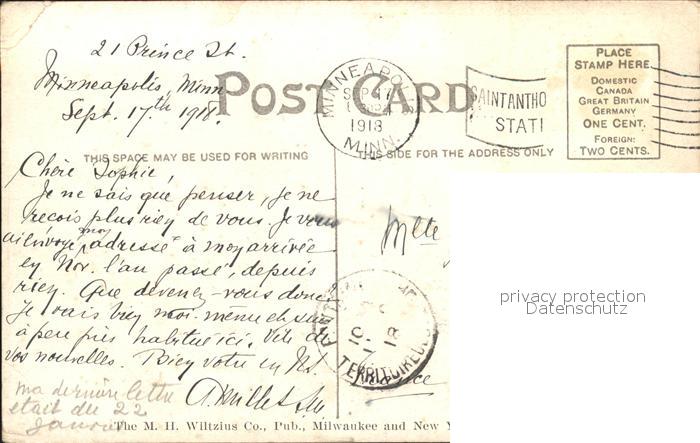 21 Prince St.
Minneapolis, Minn
Sept. 17th 1918.
POST CARD
MINNEAPOLIS
SEP 17
1918
MINN.
SAINT ANTHO
STATI
PLACE
STAMP HERE
DOMESTIC
CANADA
GREAT BRITAIN
GERMANY
ONE CENT.
FOREIGN:
TWO CENTS.
THIS SPACE MAY BE USED FOR WRITING
THIS SIDE FOR THE ADDRESS ONLY
Chère Sophie,
Je ne sais que penser, je ne
reçois plus rien de vous. Je vous
ai envoyé mon adresse à mon arrivée
en Nov. l'an passé, depuis
rien. Que devenez-vous donc
Je vais bien moi-même et suis
à peu près habitué ici. Vite de
vos nouvelles. Bien votre en N.S.
Mlle
TERRITOIRE
France
privacy protection
Datenschutz
ma dernière lettre
était du 22
Janvier
The M. H. Wiltzius Co., Pub., Milwaukee and New Y